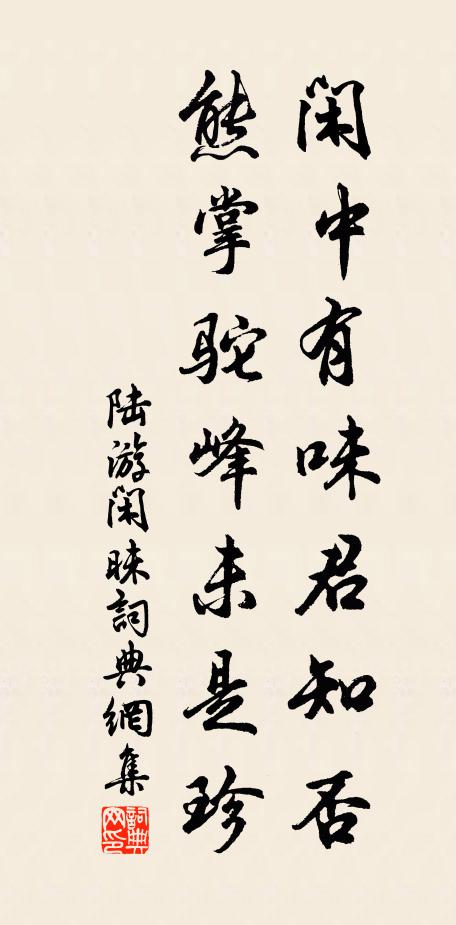 闲中有味君知否
熊掌驼峰未是珍
陆游闲味詞典網集
詞典网印